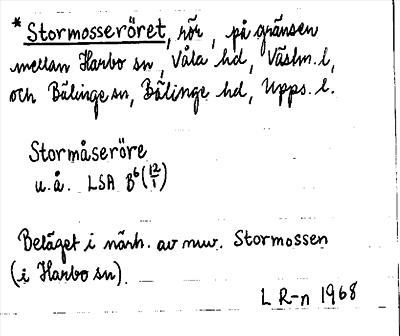 * Stormosseröret, rör, på gränsen
mellan Harbo sn, Våla hd, Västm. l,
och Bälinge sn, Bälinge hd, Upps. l.
Stormåseröre
u.å. LSA B⁶ (12/1)
Beläget i närh. av nuv. Stormossen
(i Harbo sn).
L R-n 1968